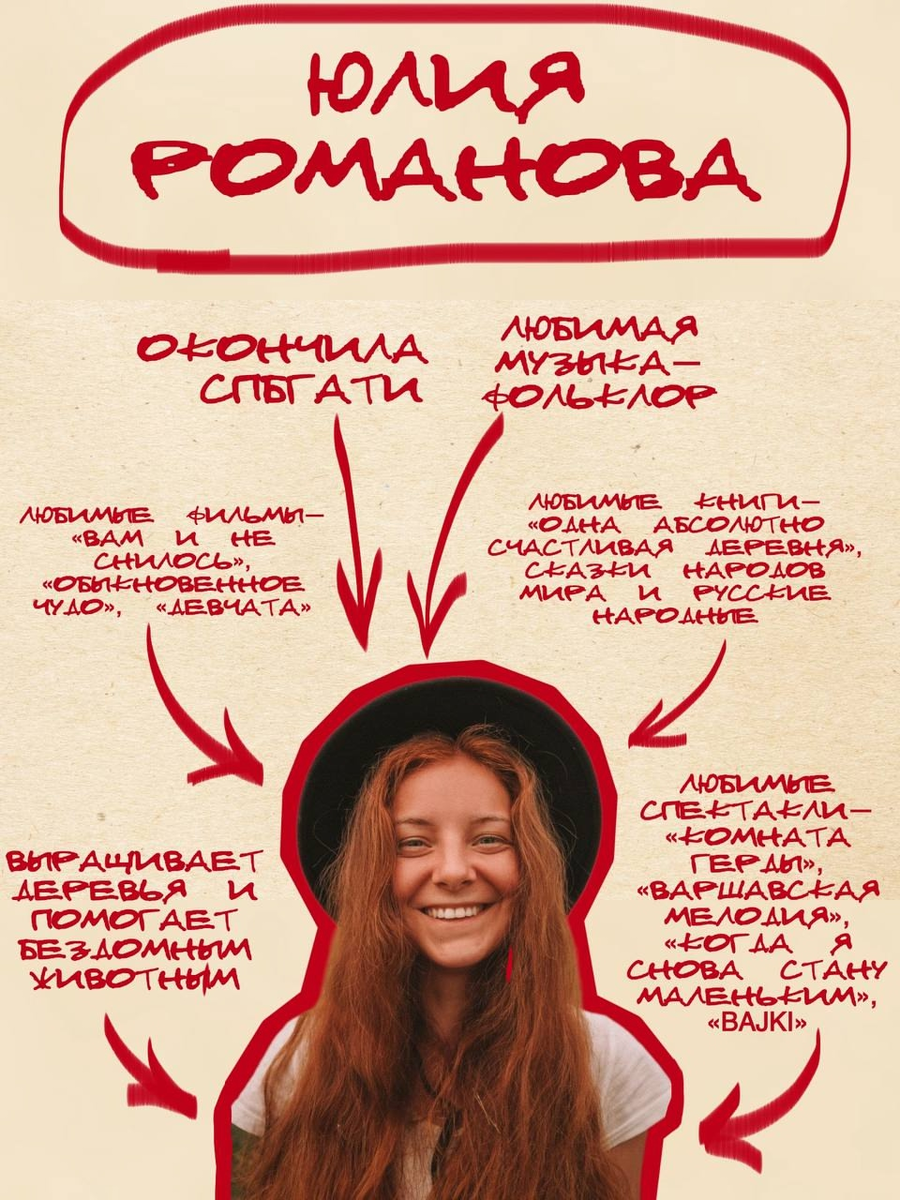 ЮЛИЯ
РОМАНОВА
ОКОНЧИЛА
СПБГАТИ
ЛЮБИМАЯ
МУЗЫКА—
ФОЛЬКЛОР
ЛЮБИМЫЕ ФИЛЬМЫ—
«ВАМ И НЕ
СНИЛОСЬ»,
«ОБЫКНОВЕННОЕ
ЧУДО», «ДЕВЧАТА»
ЛЮБИМЫЕ КНИГИ—
«ОДНА АБСОЛЮТНО
СЧАСТЛИВАЯ ДЕРЕВНЯ»,
СКАЗКИ НАРОДОВ
МИРА И РУССКИЕ
НАРОДНЫЕ
ВЫРАЩИВАЕТ
ДЕРЕВЬЯ И
ПОМОГАЕТ
БЕЗДОМНЫМ
ЖИВОТНЫМ
ЛЮБИМЫЕ
СПЕКТАКЛИ—
«КОМНАТА
ГЕРДЫ»,
«ВАРШАВСКАЯ
МЕЛОДИЯ»,
«КОГДА Я
СНОВА СТАНУ
МАЛЕНЬКИМ»,
«BAJKI»